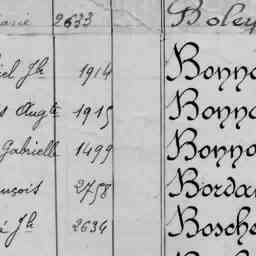 arie 2633 Boley
iel Jh 1914 Bonno
s Augte 1915 Bonno
Gabrielle 1499 Bonno
nçois 2758 Borda
é Jh 2634 Bosche